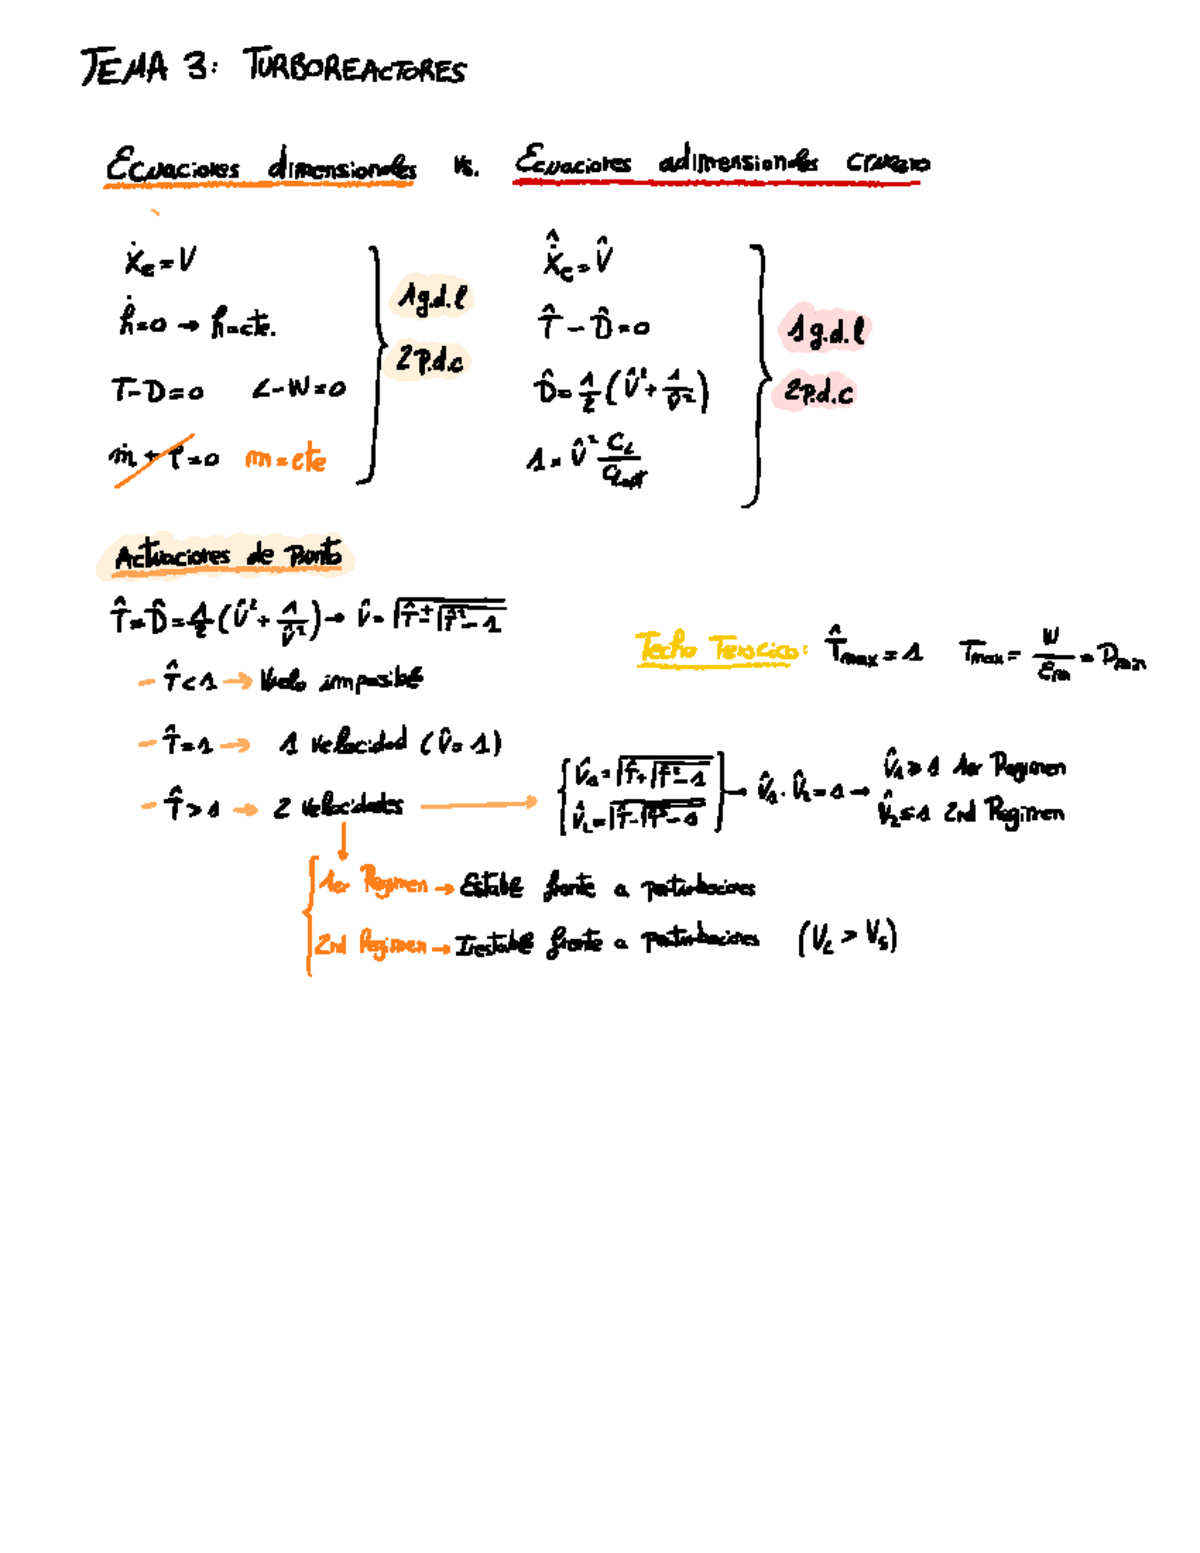 TEMA 3: TURBOREACTORES
Ecuaciones dimensionales vs. Ecuaciones adimensionales crucero
ẋe = V
ḣ=0 → h=cte.
T-D=0 L-W=0
ṁ + φ=0 m=cte
1 g.d.l
2 p.d.c
x̂̇e = V̂
T̂ - D̂ = 0
D̂ = 1/2 (V̂² + 1/V̂²)
1 = V̂² CL/CLopt
1 g.d.l
2 p.d.c
Actuaciones de Punto
T̂=D̂=1/2 (V̂² + 1/V̂²) → V̂ = √(T̂ ± √(T̂² - 1))
- T̂<1 → Vuelo imposible
- T̂=1 → 1 velocidad (V̂=1)
- T̂>1 → 2 velocidades → { V̂1 = √(T̂+√(T̂²-1)) V̂2 = √(T̂-√(T̂²-1)) } → V̂1 · V̂2 = 1 → V̂1 ≥ 1 1er Regimen
V̂2 ≤ 1 2nd Regimen
1er Regimen → Estable frente a perturbaciones
2nd Regimen → Inestable frente a perturbaciones (Vc > Vs)
Techo Teorocico: T̂max = 1 Tmax = W/Em = Dmin